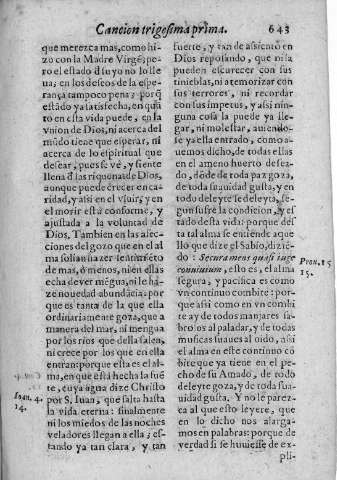 Cancion trigesima prima. 643
que merezca mas, como hi-
zo con la Madre Virgẽ; pe-
ro el estado d̃ suyo no lo lle
ua; en los deseos de la espe-
rança tampoco pena; porq̃
estãdo ya satisfecha, en quã
to en esta vida puede, en la
vnion de Dios, ni acerca del
mũdo tiene que esperar, ni
acerca de lo espiritual que
desear, pues se vè, y siente
llena d̃ las riquezas de Dios,
aunque puede crecer en ca-
ridad, y asi en el viuir, y en
el morir està conforme, y
ajustada a la voluntad de
Dios. Tambien en las afec-
ciones del gozo que en el al
ma solian hazer sentimiẽto
de mas, ò menos, ni en ellas
echa de ver mẽgua, ni le ha-
ze nouedad abundãcia: por
que es tanta de la que ella
ordinariamente goza, que a
manera del mar, ni mengua
por los rios que della salen,
ni crece por los que en ella
entran: porque esta es el al
ma, en que està hecha la fuẽ
te, cuya agua dize Christo
por S. Iuan, que salta hasta
la vida eterna: finalmente
ni los miedos de las noches
veladores llegan a ella; es-
tando ya tan clara, y tan
Ioan. 4.
14.
fuerte, y tan de assiento en
Dios reposando, que ni la
pueden escurecer con sus
tinieblas, ni atemorizar con
sus terrores, ni recordar
con sus impetus, y assi nin-
guna cosa la puede ya lle-
gar, ni molestar, auiendo-
se ya ella entrado, como a-
uemos dicho, de todas ellas
en el ameno huerto desea-
do, dõde de toda paz goza,
de toda suauidad gusta, y en
todo deleyte se deleyta, se-
gun sufre la condicion, y es
tado desta vida: porque des
ta tal alma se entiende aque
llo que dize el Sabio, diziẽ-
do: Secura mens quasi iuge
conuiuium, esto es, el alma
segura, y pacifica es como
vn continuo combite: por-
que assi como en vn combi
te ay de todos manjares sa-
brosos al paladar, y de todas
musicas suaues al oido, assi
el alma en este continuo cõ
bite que ya tiene en el pe-
cho de su Amado, de todo
deleyte goza, y de toda sua-
uidad gusta. Y no le parez-
ca al que esto leyere, que
en lo dicho nos alarga-
mos en palabras: porque de
verdad si se huuiesse de ex-
pli-
Prou. 15
15.